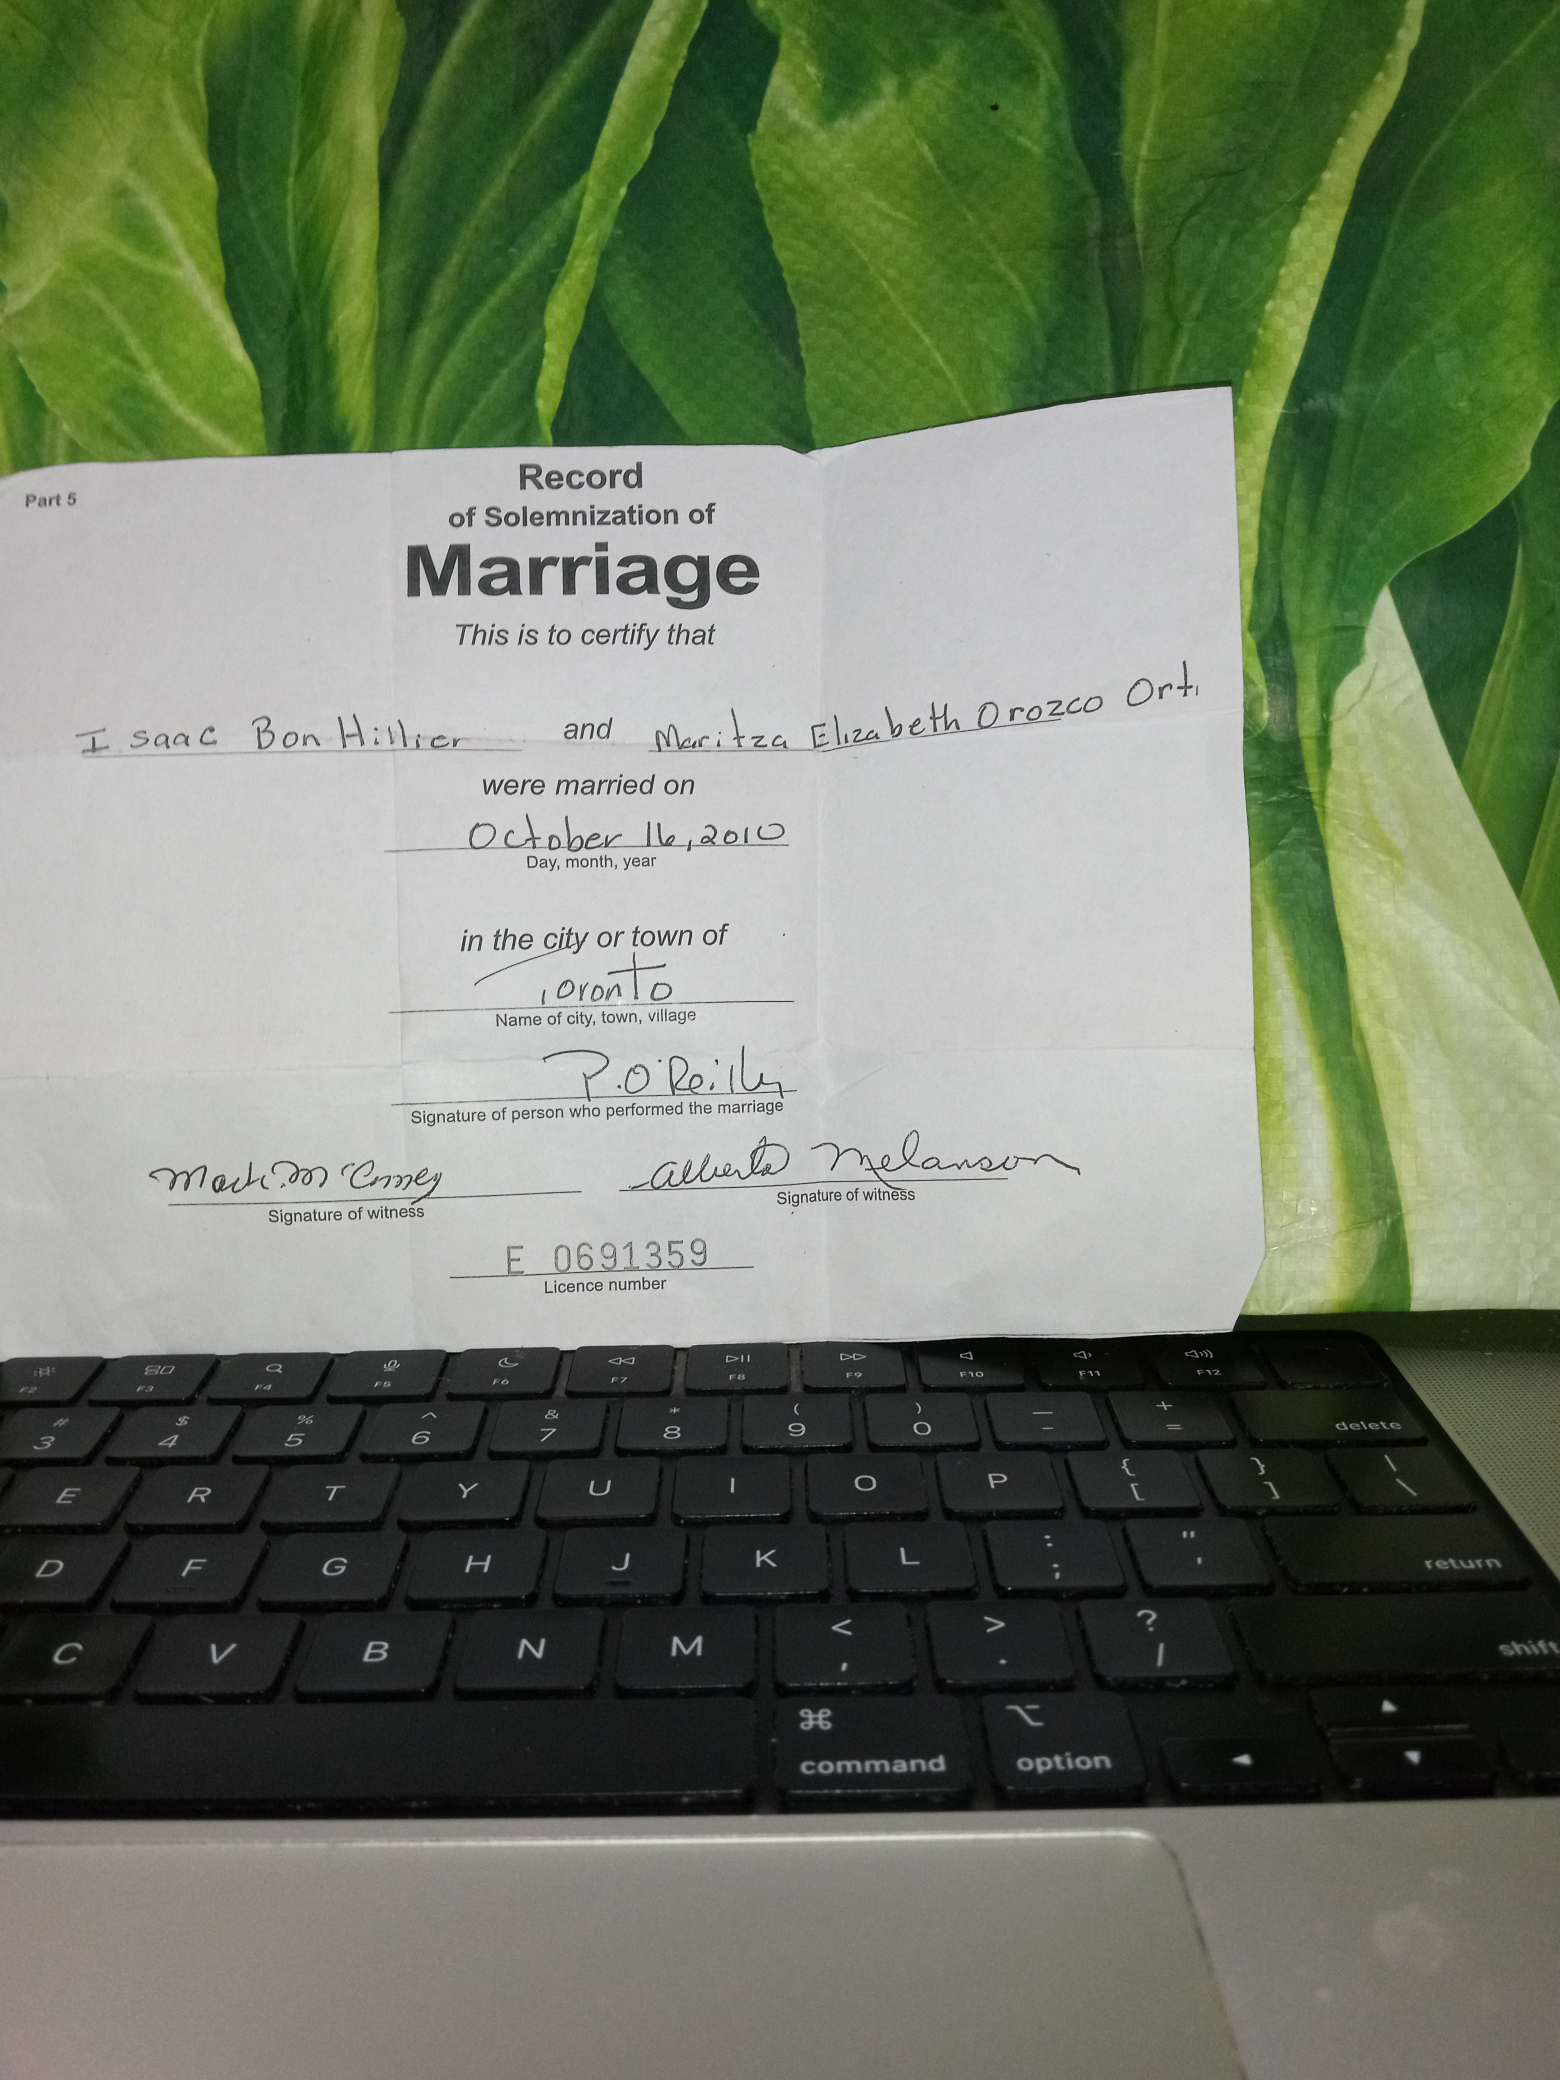 Part 5
Record
of Solemnization of
Marriage
This is to certify that
Isaac Bon Hillier and Maritza Elizabeth Orozco Orti
were married on
October 16, 2010
Day, month, year
in the city or town of
Toronto
Name of city, town, village
P. O'Reilly
Signature of person who performed the marriage
Alberto Melanson
Signature of witness Signature of witness
E 0691359
Licence number
F2 F3 F4 F5 F6 F7 F8 F9 F10 F11 F12
# $ % ^ & * ( ) — +
3 4 5 6 7 8 9 0 - = delete
E R T Y U I O P { [ } ] | \
D F G H J K L : ; " ' return
C V B N M < , > . ? / shift
⌘ ⌥
command option